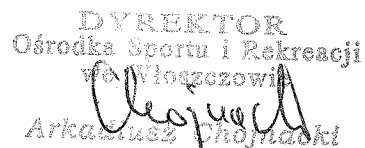 DYREKTOR
Ośrodka Sportu i Rekreacji
we Włoszczowie
Arkadiusz Chojnacki